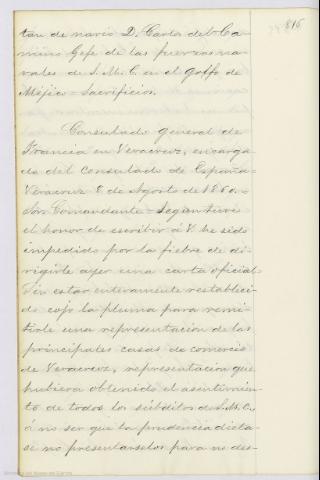 816
tán de navio D. Carlos del Ca
mino Gefe de las fuerzas na
vales de S. M. C. en el golfo de
Méjico - Sacrificios.
Consulado general de
Francia en Veracruz, encarga
do del Consulado de España -
Veracruz 8 de Agosto de 1860. -
Sor. Comandante = Segun tuve
el honor de escribir á V. he sido
impedido por la fiebre de di-
rigirle ayer una carta oficial
Sin estar enteramente restableci-
do cojo la pluma para remi-
tirle una representacion de las
principales casas de comercio
de Veracruz, representacion que
hubiera obtenido el asentimien-
to de todos los súbditos de S. M. C.,
á no ser que la prudencia dicta-
se no presentarselos para no des-